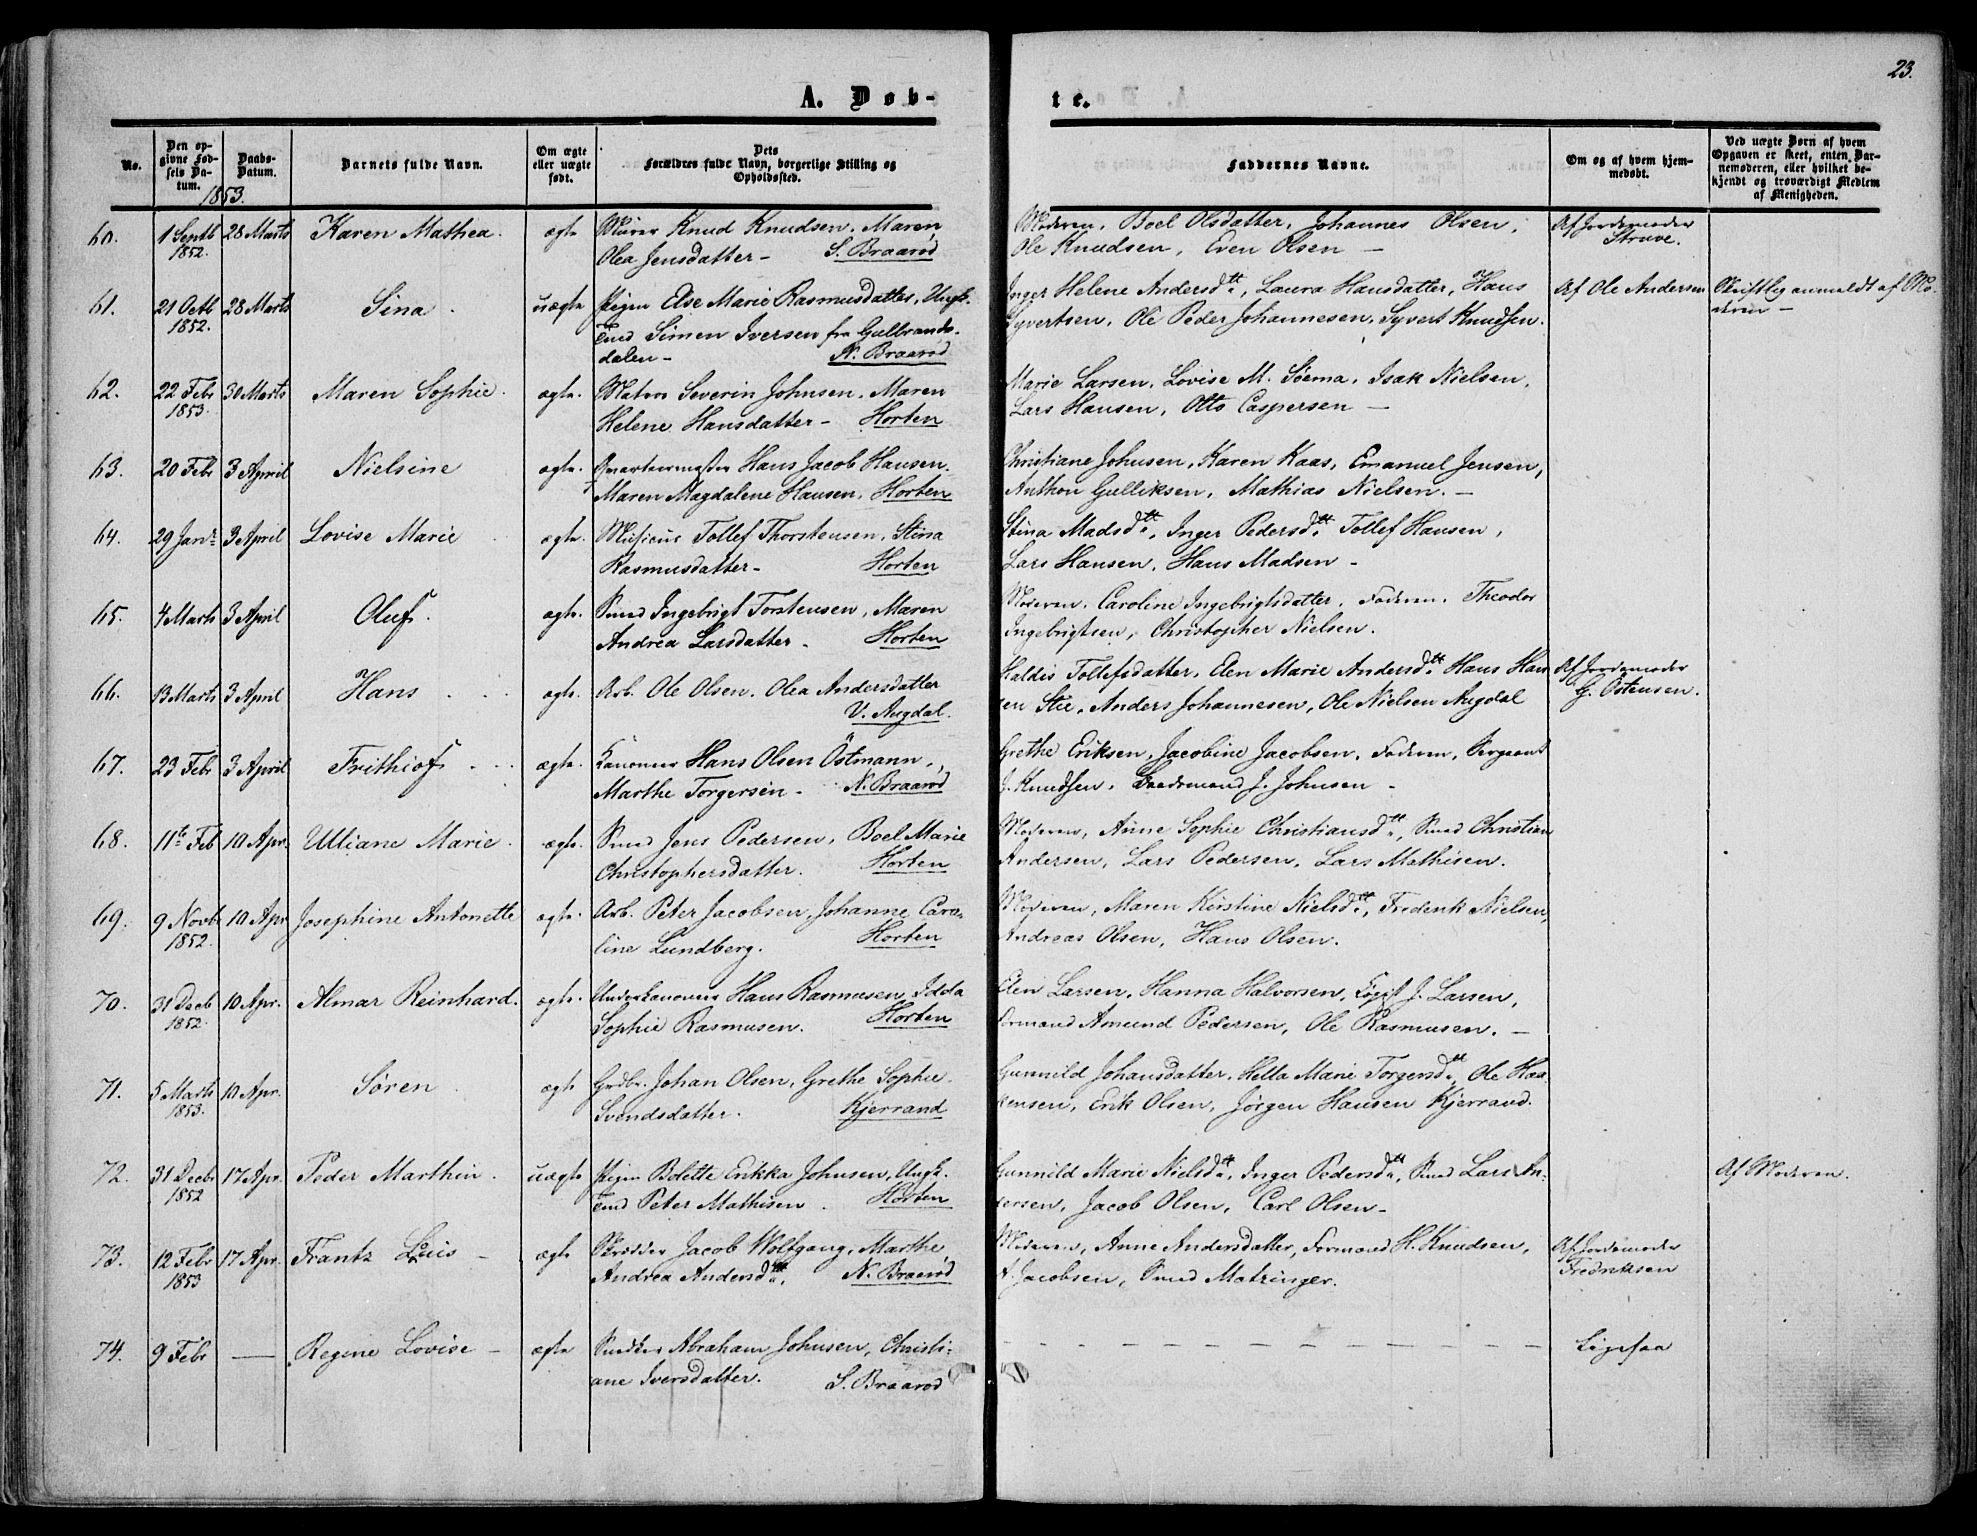 23.
A. Døb-
te.
No.
Den op-
givne Fød-
sels Da-
tum.
Daabs-
Datum.
Barnets fulde Navn.
Om ægte
eller uægte
født.
Dets
Forældres fulde Navn, borgerlige Stilling og
Opholdssted.
Faddernes Navne.
Om og af hvem hjem-
medøbt.
Ved uægte Børn af hvem
Opgaven er skeet, enten Bar-
nemoderen, eller hvilket be-
kjendt og troværdigt Medlem
af Menigheden.
1853.
60. 1 Septb 28 Marts Karen Mathea. ægte Murer Knud Knudsen, Maren Moderen, Boel Olsdatter, Johannes Olsen, Af Jordemoder
1852. Olea Jensdatter - S. Braarød Ole Knudsen, Even Olsen - Struve.
61. 21 Octb 28 Marts Sina. uægte Pigen Else Marie Rasmusdatter, Ungk. Inger Helene Andersdtt., Laura Hansdatter, Hans Af Ole Andersen Skriftlig anmeldt af Mo-
1852. Emd Simen Iversen fra Gulbrands- Syvertsen, Ole Peder Johannesen, Syvert Knudsen. deren -
dalen - N. Braarød
62. 22 Febr 30 Marts Maren Sophie. ægte. Matros Severin Johnsen, Maren Marie Larsen, Lovise M. Söema, Isak Nielsen,
1853. Helene Hansdatter - Horten Lars Hansen, Otto Caspersen -
63. 20 Febr 3 April Nielsine ægte. Qvarteermester Hans Jacob Hansen, Christiane Johnsen, Karen Kaas, Emanuel Jensen,
Maren Magdalene Hansen, Horten Anthon Gulliksen, Mathias Nielsen. -
64. 29 Janr. 3 April Lovise Marie ægte. Musicus Tollef Thorstensen, Stina Stina Madsdtt., Inger Pedersdtt. Tollef Hansen,
Rasmusdatter - Horten Lars Hansen, Hans Madsen -
65. 4 Marts 3 April Oluf. ægte. Smed Ingebrigt Torstensen, Maren Moderen, Caroline Ingebrigtsdatter, Faderen, Theodor
Andrea Larsdatter - Horten Ingebrigtsen, Christopher Nielsen.
66. 13 Marts 3 April Hans ægte. Arb. Ole Olsen, Olea Andersdatter Haldis Tollefsdatter, Elen Marie Andersdtt. Hans Han Af Jordemoder
V. Augdal. sen Stie, Anders Johannesen, Ole Nielsen Augdal G. Östensen.
67. 23 Febr 3 April Frithiof ægte. Kanoneer Hans Olsen Östmann, Grethe Eriksen, Jacobine Jacobsen, Faderen, Sergeant
Marthe Torgersen - N. Braarød J. Knudsen, Baadsmand J. Johnsen -
68. 11te Feb 10 Apr. Ulliane Marie. ægte. Smed Jens Pedersen, Boel Marie Moderen, Anne Sophie Christiansdtt., Smed Christian
Christophersdatter. Horten Andersen, Lars Pedersen, Lars Mathisen.
69. 9 Novb 10 Apr Josephine Antonette ægte. Arb. Peter Jacobsen, Johanne Caro- Moderen, Maren Kirstine Nielsdtt., Frederik Nielsen,
1852. line Lundberg. Horten Andreas Olsen, Hans Olsen.
70. 31 Decb 10 Apr. Almar Reinhard. ægte. Underkanoneer Hans Rasmusen, Idda Elen Larsen, Hanna Halvorsen, J. Larsen,
1852. Sophie Rasmusen. Horten Formand Amund Pedersen, Ole Rasmusen. -
71. 5 Marts 10 Apr. Søren ægte Grdbr. Johan Olsen, Grethe Sophie Gunnild Johansdatter, Hella Marie Torgersdtt., Ole Haa-
1853. Svendsdatter. Kjerrand kensen, Erik Olsen, Jørgen Hansen Kjerrand.
72. 31 Decbr 17 Apr. Peder Marthin. uægte Pigen Bolette Erikka Johnsen, Ungk. Gunnild Marie Nielsdtt., Inger Pedersdtt., Smed Lars An- Af Moderen.
1852 Emd Peter Mathisen. Horten dersen, Jacob Olsen, Carl Olsen -
73. 12 Febr 17 Apr. Frantz Luis - ægte Skrædder Jacob Wolfgang, Marthe Moderen, Anne Andersdatter, Formand H. Knudsen, Af Jordemoder
1853 Andrea Andersdtt., N. Braarød A. Jacobsen, Smed Matzinger. Fredriksen
74. 9 Febr — Regine Lovise - ægte Snedker Abraham Johnsen, Christi- - - - - - - - - - - - Ligesaa
ane Iversdatter. S. Braarød